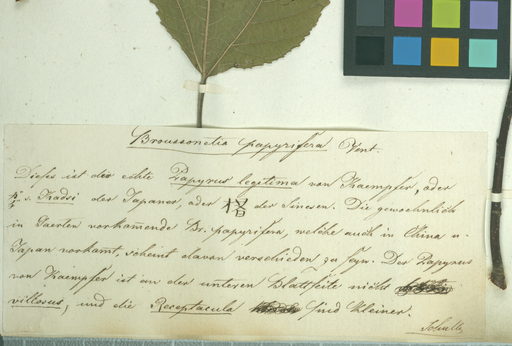 Broussonetia papyrifera Vent.
Dieses ist die echte Papyrus legitima von Kaempfer, oder
v. Kadsi der Japaner, oder 楮 der Sinesen. Die gewoehnlich
in Gaerten vorkom̄ende Br. papyrifera, welche auch in China u.
Japan vorkom̄t, scheint davon verschieden zu seyn. Der Papyrus
von Kaempfer ist an der unteren Blattseite nicht
villosus, und die Receptacula sind kleiner.
Schult